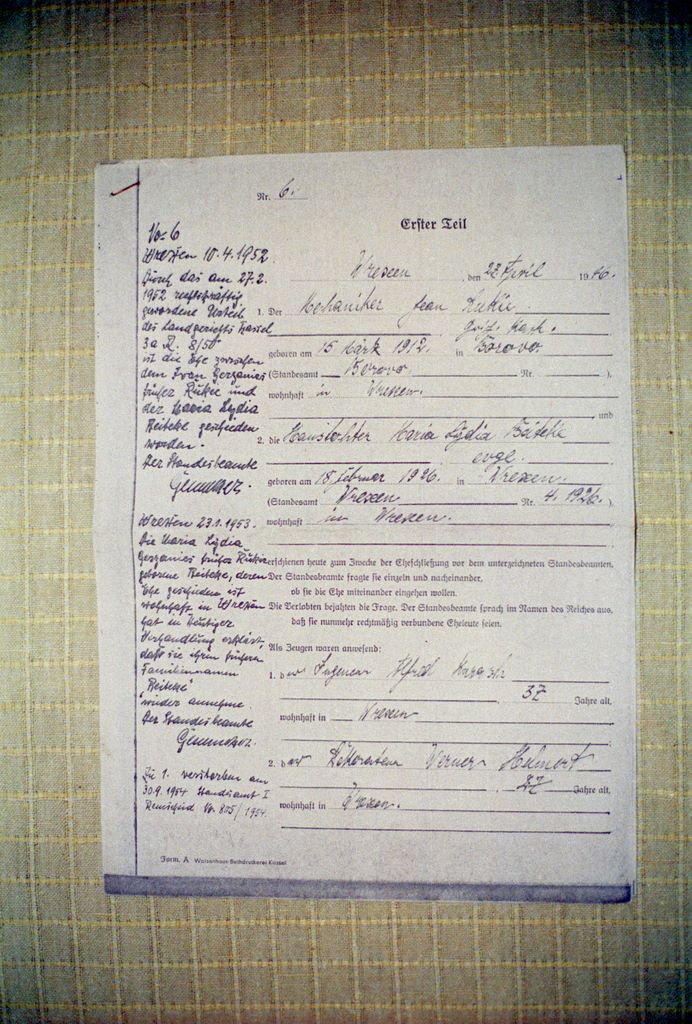 Nr. 6.
Erster Teil
No. 6
Wrexen 10.4.1952.
Durch das am 27.2.
1952 rechtskräftig
gewordene Urteil
des Landgerichts Kassel
3a R. 8/50
ist die Ehe zwischen
dem Ivan Gerganies
früher Rukie und
der Maria Lydia
Beiteke geschieden
worden.
Der Standesbeamte
Wrexen 23.1.1953.
Die Maria Lydia
Gerganies früher Rukie
geborene Beiteke, deren
Ehe geschieden ist
wohnhaft in Wrexen
hat in heutiger
Verhandlung erklärt,
daß sie ihren früheren
Familiennamen
"Beiteke"
wieder annehme.
Der Standesbeamte
Zu 1. verstorben am
30.9.1954 Standesamt I
Remscheid No. 805/1954.
Wrexen, den 22. April 1946.
1. Der Mechaniker Jean Rukie
geboren am 15 März 1912. in Borovo.
(Standesamt Borovo Nr. )
wohnhaft in Wrexen.
und
2. die Haustochter Maria Lydia Beiteke
evgl.
geboren am 18 Februar 1926. in Wrexen.
(Standesamt Wrexen Nr. 4. 1926.)
wohnhaft in Wrexen.
erschienen heute zum Zwecke der Eheschließung vor dem unterzeichneten Standesbeamten.
Der Standesbeamte fragte sie einzeln und nacheinander,
ob sie die Ehe miteinander eingehen wollen.
Die Verlobten bejahten die Frage. Der Standesbeamte sprach im Namen des Reiches aus,
daß sie nunmehr rechtmäßig verbundene Eheleute seien.
Als Zeugen waren anwesend:
1. der Ingenieur Alfred
37 Jahre alt,
wohnhaft in Wrexen
2. der Werner
27 Jahre alt,
wohnhaft in Wrexen.
Form. A Waisenhaus-Buchdruckerei Kassel